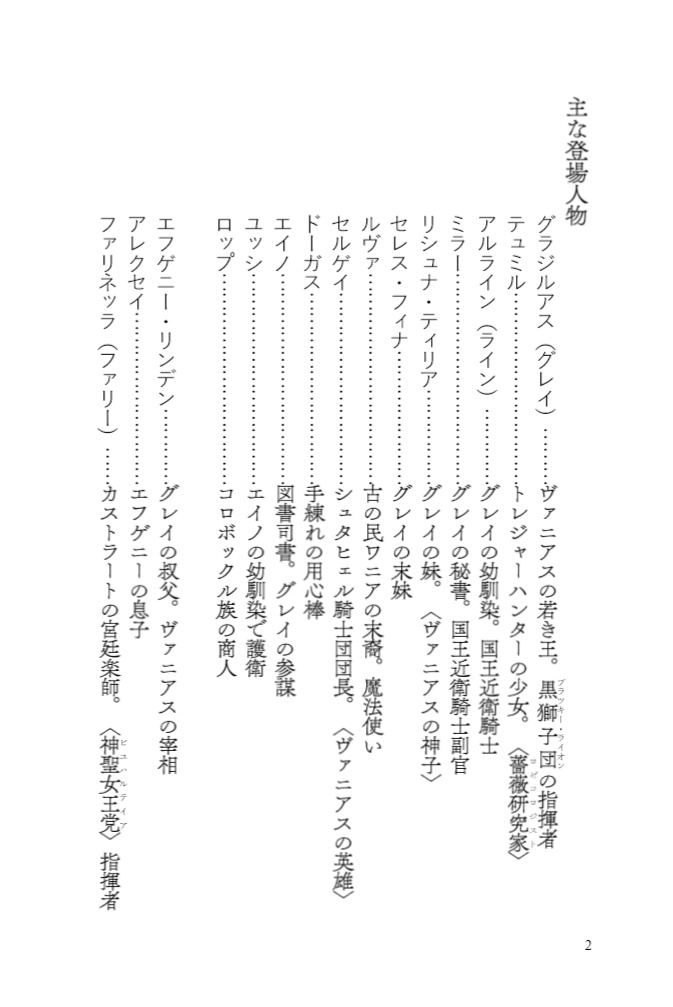 主な登場人物
グラジルアス（グレイ）………ヴァニアスの若き王。黒獅子団の指揮者
ブラッキー・ライオン
テュミル………………………トレジャーハンターの少女。〈薔薇研究家〉
ロゼココジスト
アルライン（ライン）…………グレイの幼馴染。国王近衛騎士
ミラー…………………………グレイの秘書。国王近衛騎士副官
リシュナ・ティリア…………グレイの妹。〈ヴァニアスの神子〉
セレス・フィナ………………グレイの末妹
ルヴァ…………………………古の民ワニアの末裔。魔法使い
セルゲイ………………………シュタヒェル騎士団団長。〈ヴァニアスの英雄〉
ドーガス………………………手練れの用心棒
エイノ…………………………図書司書。グレイの参謀
ユッシ…………………………エイノの幼馴染で護衛
ロップ…………………………コロボックル族の商人
エフゲニー・リンデン………グレイの叔父。ヴァニアスの宰相
アレクセイ……………………エフゲニーの息子
ファリネッラ（ファリー）……カストラートの宮廷楽師。〈神聖女王党〉指揮者
ピユハルテイア
2